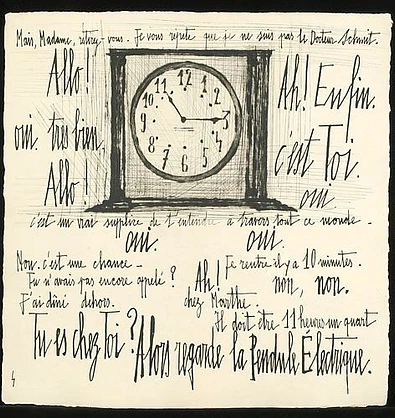 Mais, Madame, retirez-vous. Je vous répète que je ne suis pas le Docteur Schmit.
Allo! Ah! Enfin.
oui très bien. c'est Toi.
Allo! oui
12
11 1
10 2
9 3
8 4
7 5
6
c'est un vrai supplice de t'entendre à travers tout ce monde -
oui. oui.
Non. c'est une chance - Je rentre il y a 10 minutes.
Tu n'avais pas encore appelé? Ah! non, non.
J'ai dîné dehors. chez Marthe.
Il doit être 11 heures un quart
Tu es chez Toi? Alors regarde la Pendule Électrique.